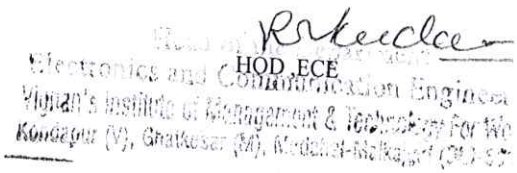 Head of the Department
HOD ,ECE
Electronics and Communication Engineer
Vignan's Institute of Management & Technology For Wo
Kondapur (V), Ghatkesar (M), Medchal-Malkajgiri (Dt)-